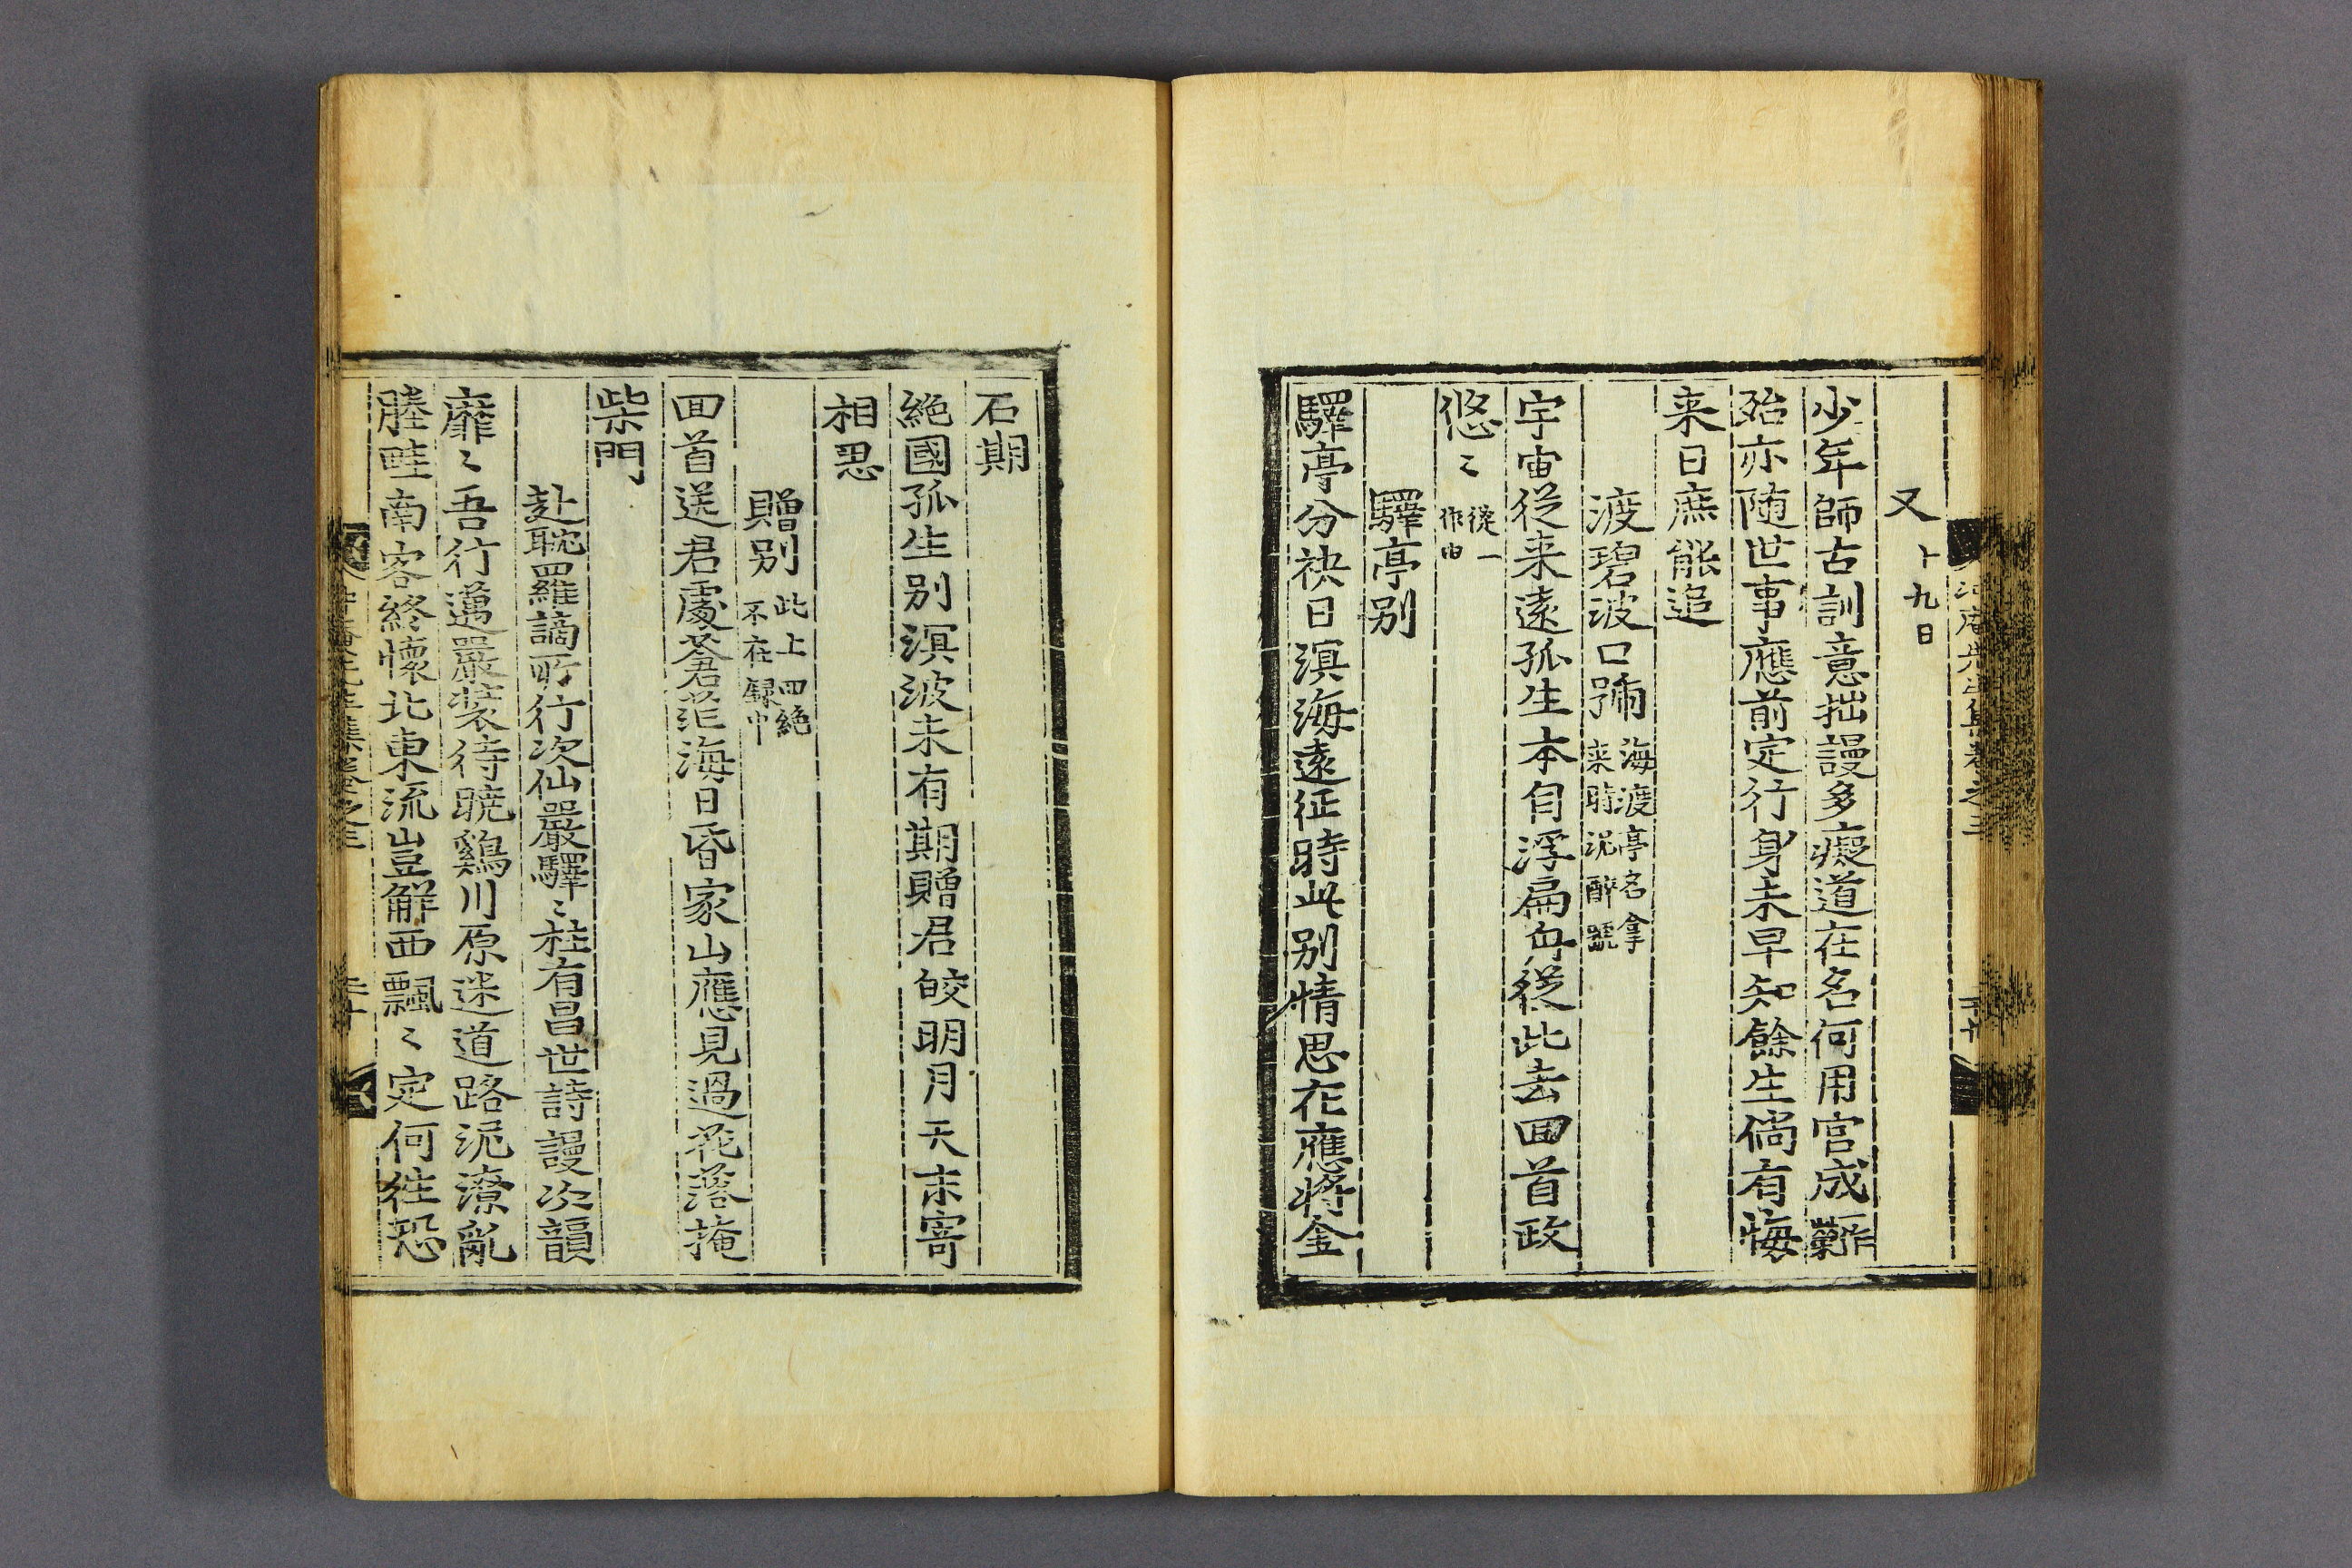 又 卜九日
少年師古訓意拙謾多癡道在名何用官成艱
殆亦随世事應前定行身未早知餘生倘有悔
来日庶能追
渡碧波口號 海渡亭名拿
来時泥醉號
宇宙從来遠孤生本自浮扁舟從此去回首政
悠〻 從一
作由
驛亭別
驛亭分袂日溟海遠征時此别情思在應將金
石期
絶國孤生别溟波未有期贈君皎明月天末寄
相思
贈别 此上四絶
不在録中
回首送君處蒼茫海日昏家山應見過花落掩
柴門
赴耽羅謫所行次仙嚴驛〻柱有昌世詩謾次韻
靡〻吾行邁嚴装待曉鷄川原迷道路泥潦亂
塍畦南客終懷北東流豈觧西飄〻定何徃恐